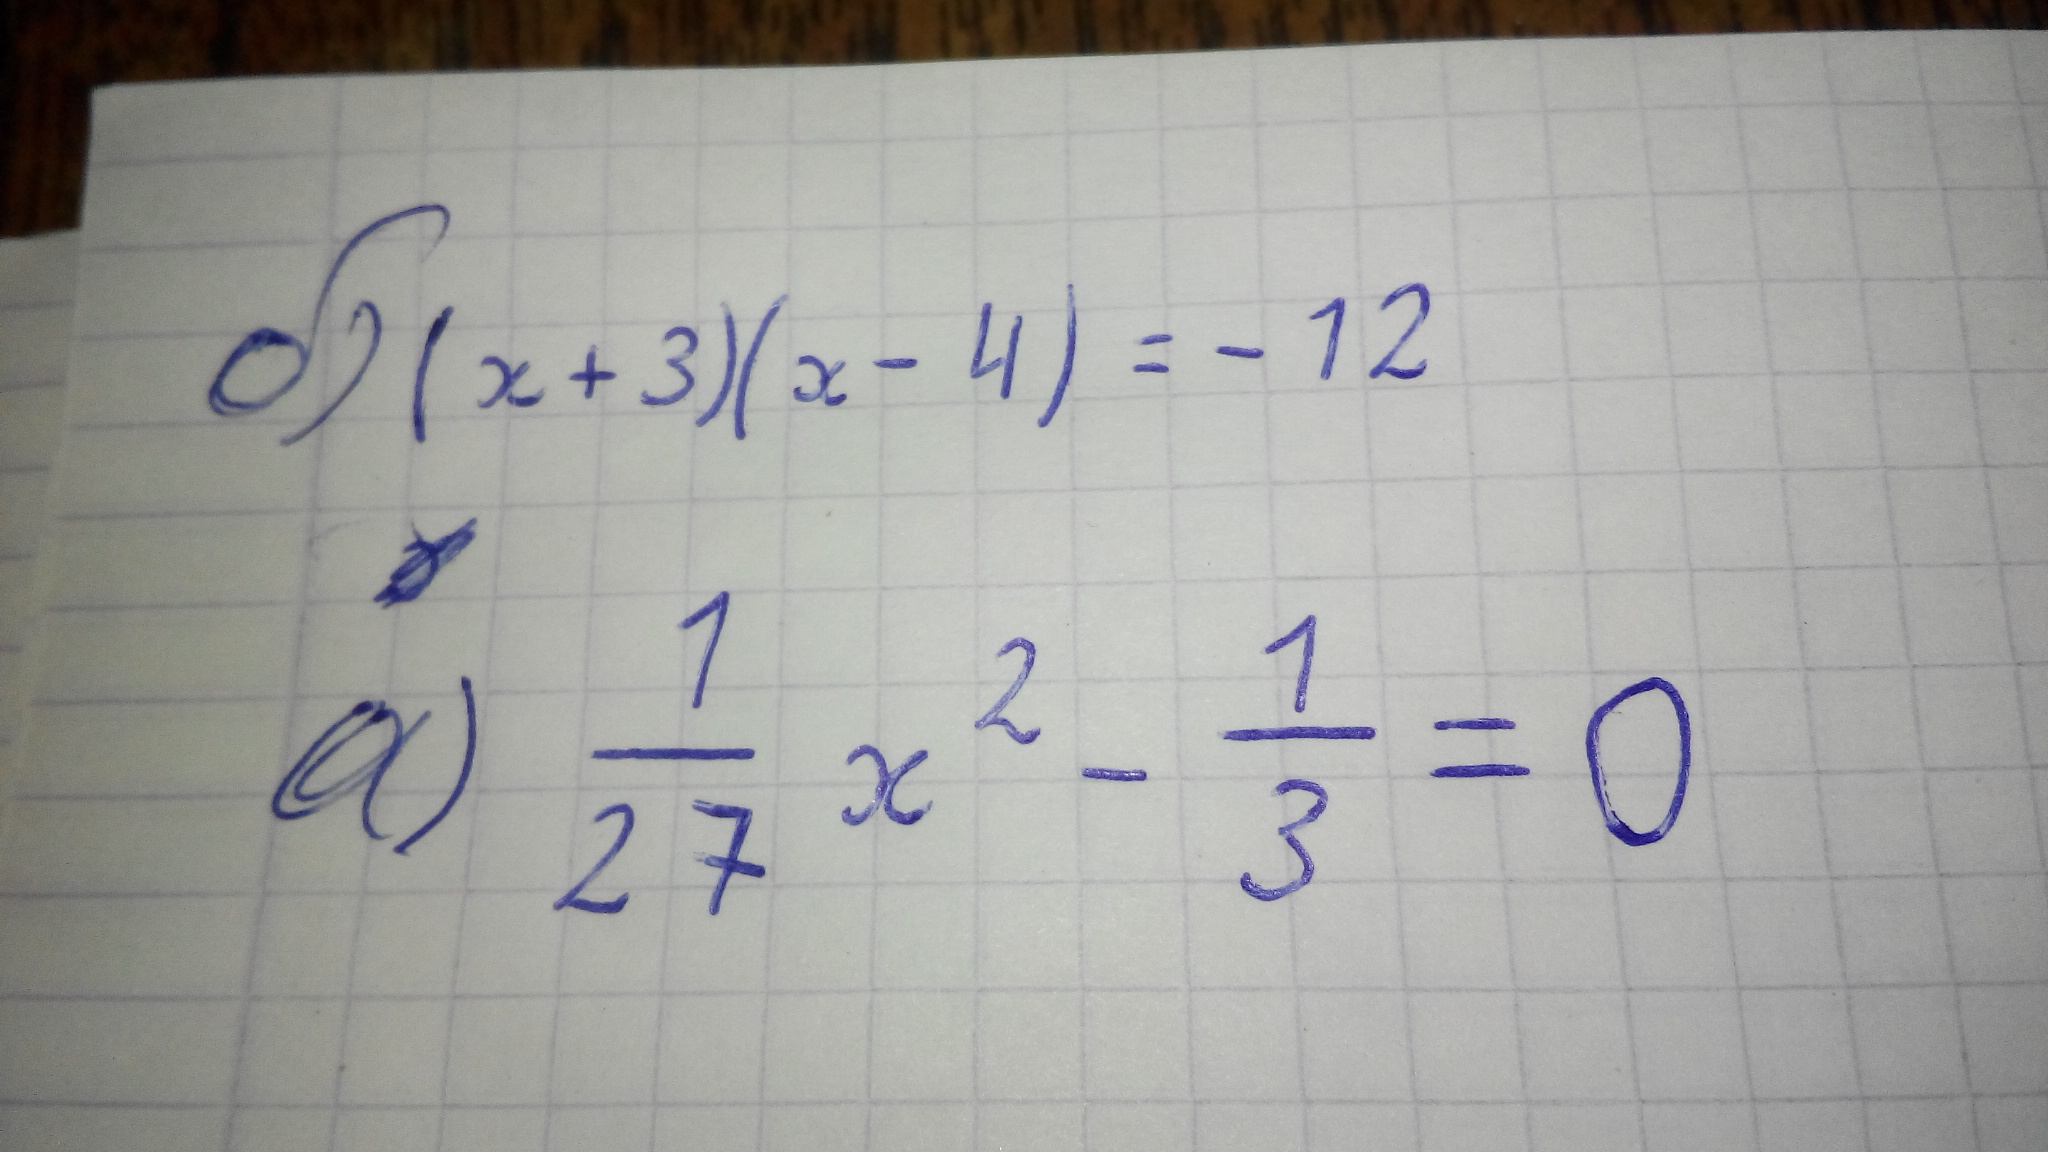 б) (x + 3)(x - 4) = - 12
а) 1/27 x² - 1/3 = 0